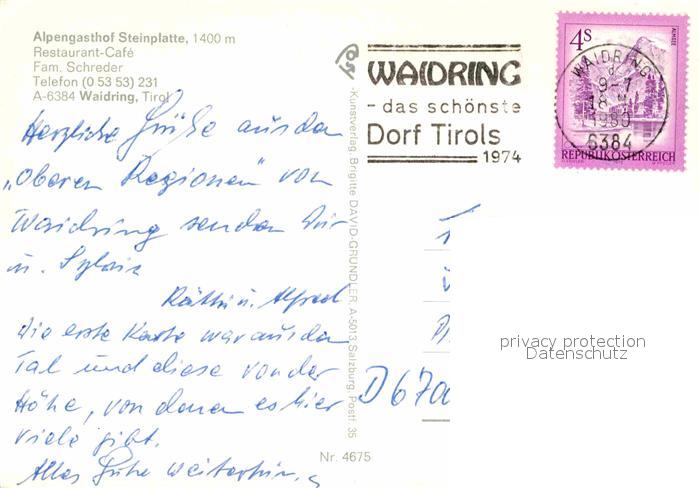 Alpengasthof Steinplatte, 1400 m
Restaurant-Café
Fam. Schreder
Telefon (0 53 53) 231
A-6384 Waidring, Tirol
Herzliche Grüße aus den
„oberen Regionen" von
Waidring senden Dir
u. Sylvia
Käthi u. Alfred
Die erste Karte war aus dem
Tal und diese von der
Höhe, von denen es hier
viele gibt.
Alles Gute weiterhin
-Kunstverlag Brigitte DAVID-GRÜNDLER, A-5013 Salzburg, Postf. 35
Nr. 4675
WAIDRING
- das schönste
Dorf Tirols
1974
4 S
ALMSEE
REPUBLIK ÖSTERREICH
WAIDRING
9-7
18.
1980
6384
D 670
privacy protection
Datenschutz